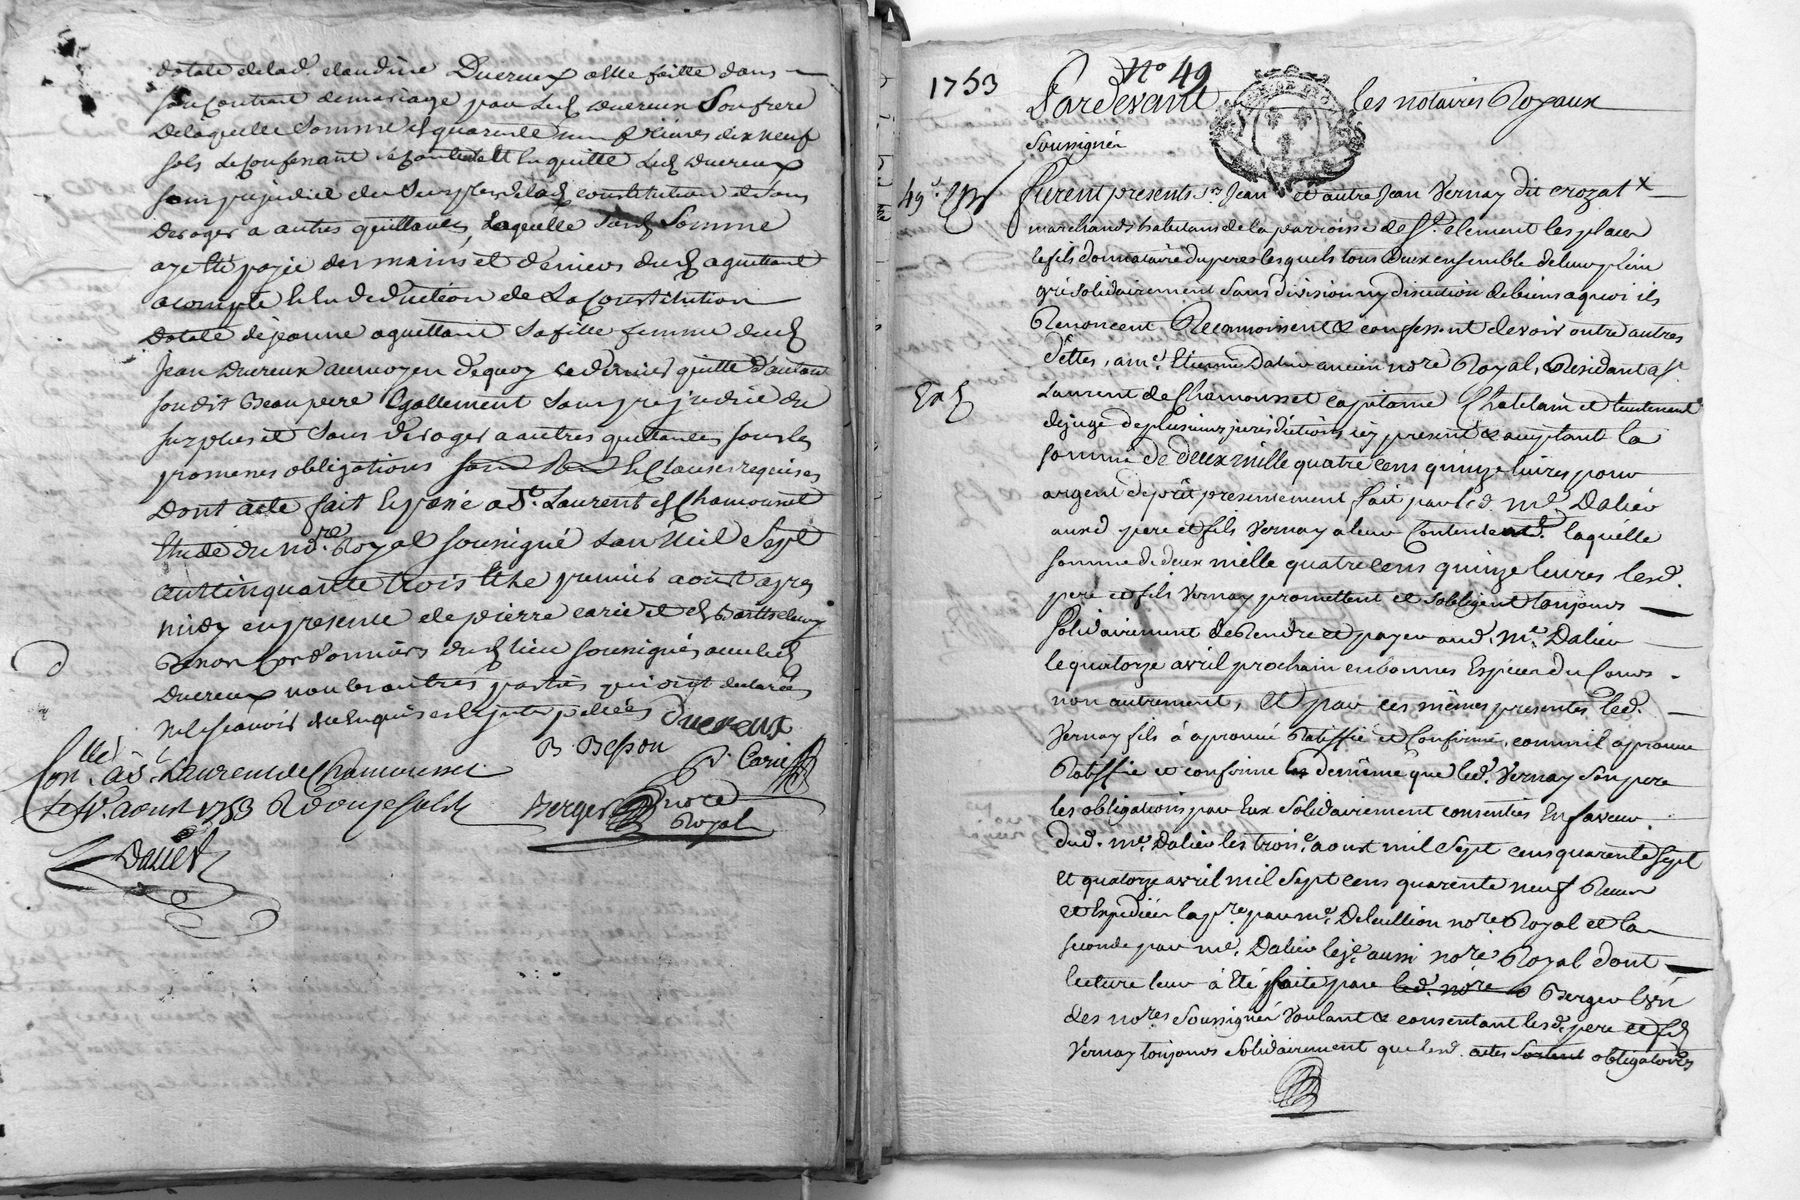 dotale de lad. claudine Ducreux a elle faitte dans
son Contrant de mariage par led Ducreux Son frere
De laquelle Somme de quarente un livres dix neuf
sols se Confesant Content et en quitte led Ducreux
sans prejudice du Surplus de lad constitution et sans
deroger a autres quittances, Laquelle susd Somme
aye été payée des mains et deniers dud aguettant
acompte et en deduction de La Constitution
Dotale de jeanne aguettant sa fille femme dud
Jean Ducreux au moyen dequoy ce dernier quitte d'autant
sondit Beau pere Egallement sans prejudice du
surplus et sans deroger a autres quittances sous les
promesses obligations et Clauses requises
Dont acte fait et passé a St. Laurent de Chamousset
Etude du no.re Royal sousigné Lan Mil Sept
cent Cinquante trois et le premier aoust apres
midy en presence de pierre carié et de Barthelemy
Cordonniers dud lieu sousignés avec led
Ducreux non les autres parties qui ont declarées
ne le scavoir de ce enquis et interpellées Ducreux
B. Besson
P. Carié
Con.llé à St. Laurent de Chamousset
le aoust 1753 R douze sols
Berger nore
Royal
Dalier
1753
N° 49
Pardevant les notaires Royaux
Soussignés
49e
furent presents sr. Jean et autre Jean Vernay dit crozat x
marchands habitans de la parroisse de St. clement les places
le fils donnataire du pere lesquels tous deux ensemble de leur plein
gré solidairement sans division ny discution de biens a quoi ils
Renoncent Reconnoissent & confessent devoir outre autres
dettes, a me. Etienne Dalier ancien nore Royal, Residant a St
Laurent de Chamousset capitaine Chatelain et lieutenant
de juge de plusieurs jurisdictions icy present & acceptant la
somme de deux mille quatre cens quinze livres pour
argent de prêt presentement fait par led. me. Dalier
auxd pere et fils Vernay a leur Contentemt. laquelle
somme de deux mille quatre cens quinze livres lesd.
pere et fils Vernay promettent et s'obligent toujours
solidairement de Rendre et payer aud. me. Dalier
le quatorze avril prochain en bonnes Especes du Cours
non autrement, Et par ces mêmes presentes led.
Vernay fils à aprouvé Ratiffié et Confirmé, comme il aprouve
Ratiffie et confirme de même que led. Vernay son pere
les obligations par Eux solidairement consenties En faveur
dud. me. Dalier les trois aoust mil Sept cens quarente sept
et quatorze avril mil Sept cens quarente neuf Receues
et Expediées la pre. par me. Deleullion nore. Royal et la
seconde par me. Dalier le je. aussi nore Royal dont
lecture leur à Eté faite par led. nore Berger l'un
des nores Soussignés Voulant & consentant lesd. pere et fils
Vernay toujours Solidairement que lesd. actes Sortent obligatoires